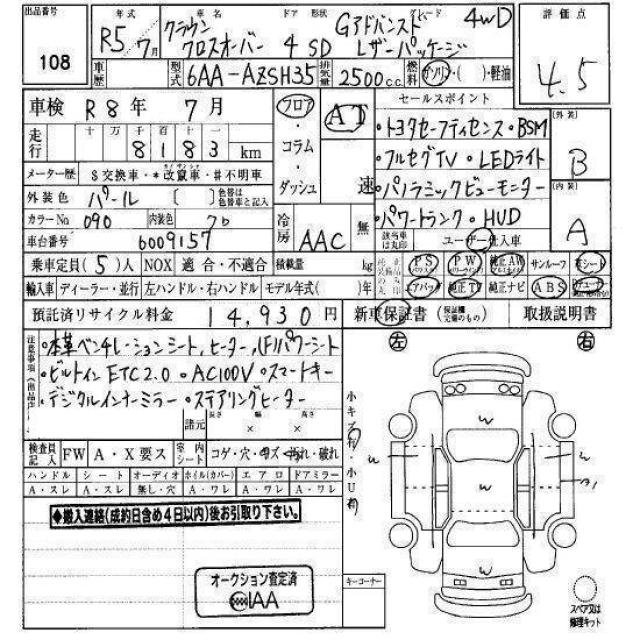 出品番号 108
年式 R5/7月
車名 クラウン クロスオーバー
ドア 形状 4 SD
グレード Gアドバンスト レザーパッケージ 4WD
評価点 4.5
車歴
型式 6AA-AZSH35
排気量 2500 c.c.
燃料 ガソリン・( )・軽油
車検 R8年 7月
フロア・コラム・ダッシュ
AT 速
セールスポイント
・トヨタセーフティセンス ・BSM
・フルセグTV ・LEDライト
・パノラミックビューモニター
・パワートランク ・HUD
外装 B
内装 A
走行 十 万 千 百 十 一
8 1 8 3 km
メーター歴 $交換車・*改竄車・#不明車
外装色 パール 〔 〕 色替車は色替車と記入
カラーNo 090 内装色 クロ
車台番号 6009157
冷房 AAC 無
該当車は丸印 ユーザー仕入車
乗車定員(5)人 NOX 適合・不適合 積載量 kg
PS パワステ PW パワーウィンド 純正AW サンルーフ 革シート
エアバッグ 純正TV 純正ナビ ABS
輸入車 ディーラー・並行 左ハンドル・右ハンドル モデル年式( )年
預託済リサイクル料金 14,930 円
新車保証書 (保証継続交換のもの) 取扱説明書
注意事項
・本革ベンチレーションシート,ヒーター,(F)パワーシート
・ビルトインETC2.0 ・AC100V ・スマートキー
・デジタルインナーミラー ・ステアリングヒーター
諸元 長さ × 幅 × 高さ
左 右
検査員記入 FW A・X要ス 室内シート コゲ・穴・キズ・汚れ・破れ
ハンドル シート オーディオ ホイル(カバー) エアロ ドアミラー
A・スレ A・スレ 無し・穴 A・ワレ A・ワレ A・ワレ
小キズ 小U
W
W
W
W
W
◆搬入連絡(成約日含め4日以内)後お引取り下さい。
オークション査定済
IAA
キーコーナー
スペア又は修理キット